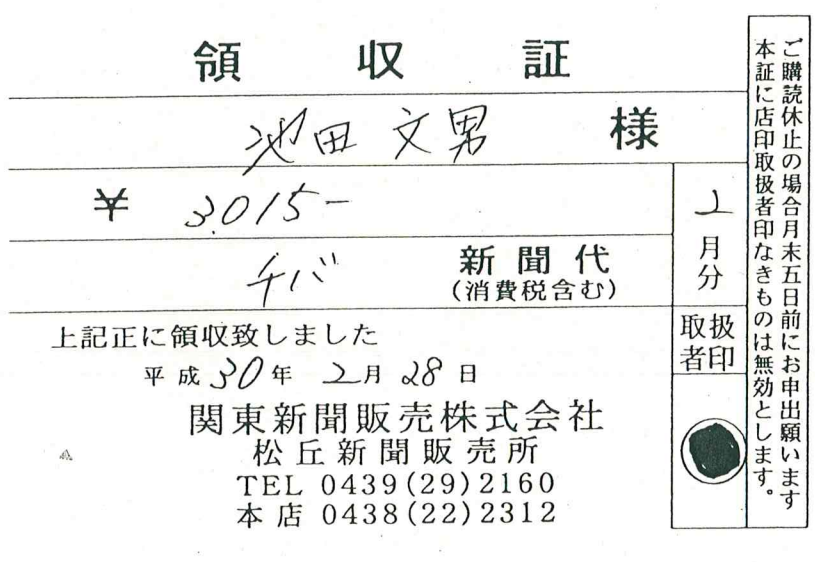 領 収 証
池田 文男 様
¥ 3,015-
チバ 新聞代
(消費税含む)
2
月
分
上記正に領収致しました
平成30年 2月 28日
関東新聞販売株式会社
松丘新聞販売所
TEL 0439(29)2160
本店 0438(22)2312
取扱
者印
ご購読休止の場合月末五日前にお申出願います
本証に店印取扱者印なきものは無効とします。